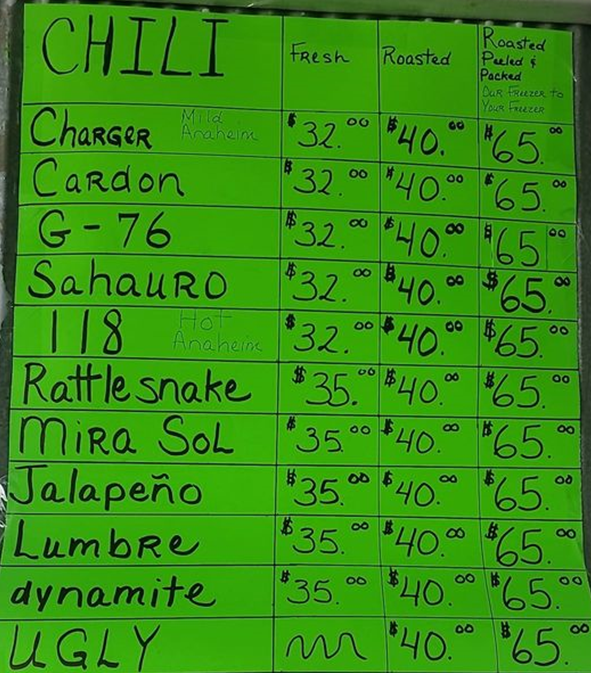 CHILI Fresh Roasted Roasted
Peeled &
Packed
Our Freezer to
Your Freezer
Charger Mild Anaheim $32.00 $40.00 $65.00
Cardon $32.00 $40.00 $65.00
G-76 $32.00 $40.00 $65.00
Sahauro $32.00 $40.00 $65.00
118 Hot Anaheim $32.00 $40.00 $65.00
Rattlesnake $35.00 $40.00 $65.00
Mira Sol $35.00 $40.00 $65.00
Jalapeño $35.00 $40.00 $65.00
Lumbre $35.00 $40.00 $65.00
dynamite $35.00 $40.00 $65.00
UGLY $40.00 $65.00